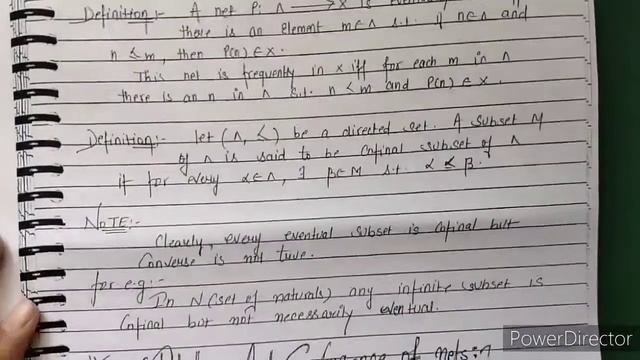 Definition:- A net P: Λ → X is
there is an element m∈Λ s.t. if n∈Λ and
n ≤ m, then P(n) ∈ X.
This net is frequently in X iff for each m in Λ
there is an n in Λ s.t. n < m and P(n) ∈ X.
Definition:- let (Λ, ≤) be a directed set. A subset M
of Λ is said to be cofinal subset of Λ
if for every α∈Λ, ∃ β∈M s.t. α ≤ β.
NOTE:-
Clearly, every eventual subset is cofinal but
Converse is not true.
for e.g:-
In N (set of naturals) any infinite subset is
Cofinal but not necessarily eventual.
of nets:-
PowerDirector